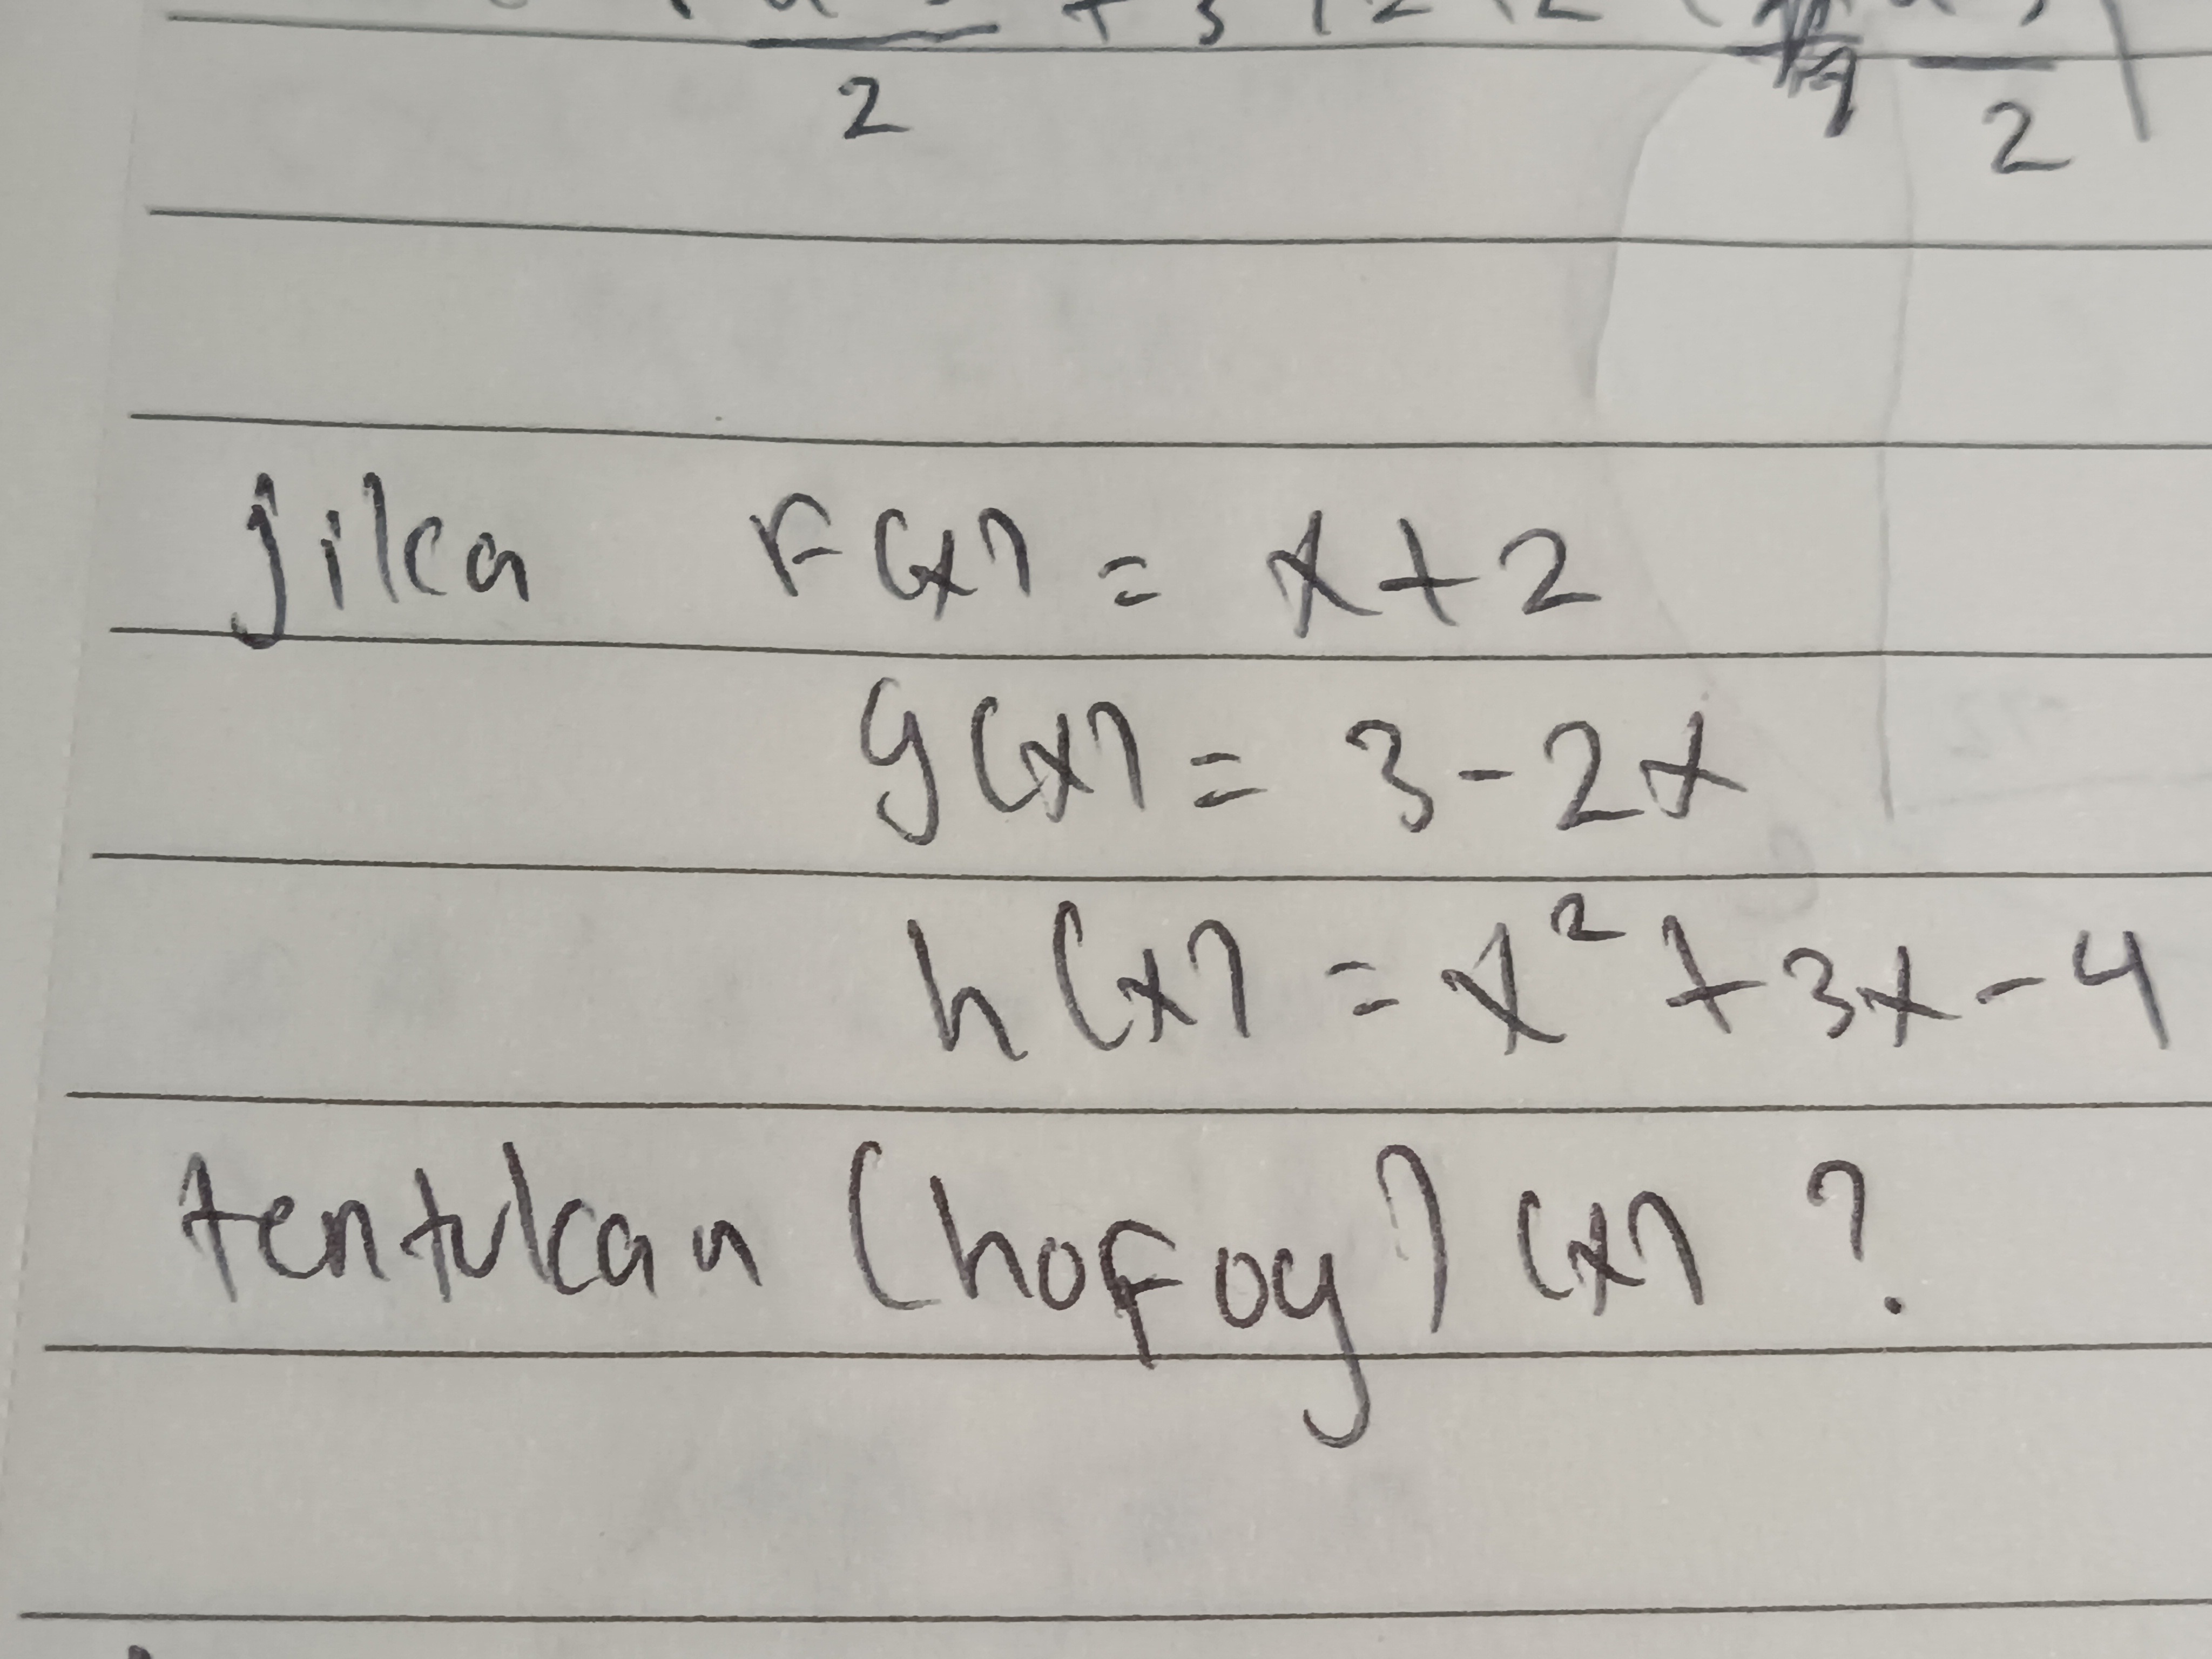 2 2
jika F(x) = x+2
g(x) = 3-2x
h(x) = x² +3x-4
tentukan (hoFog) (x) ?